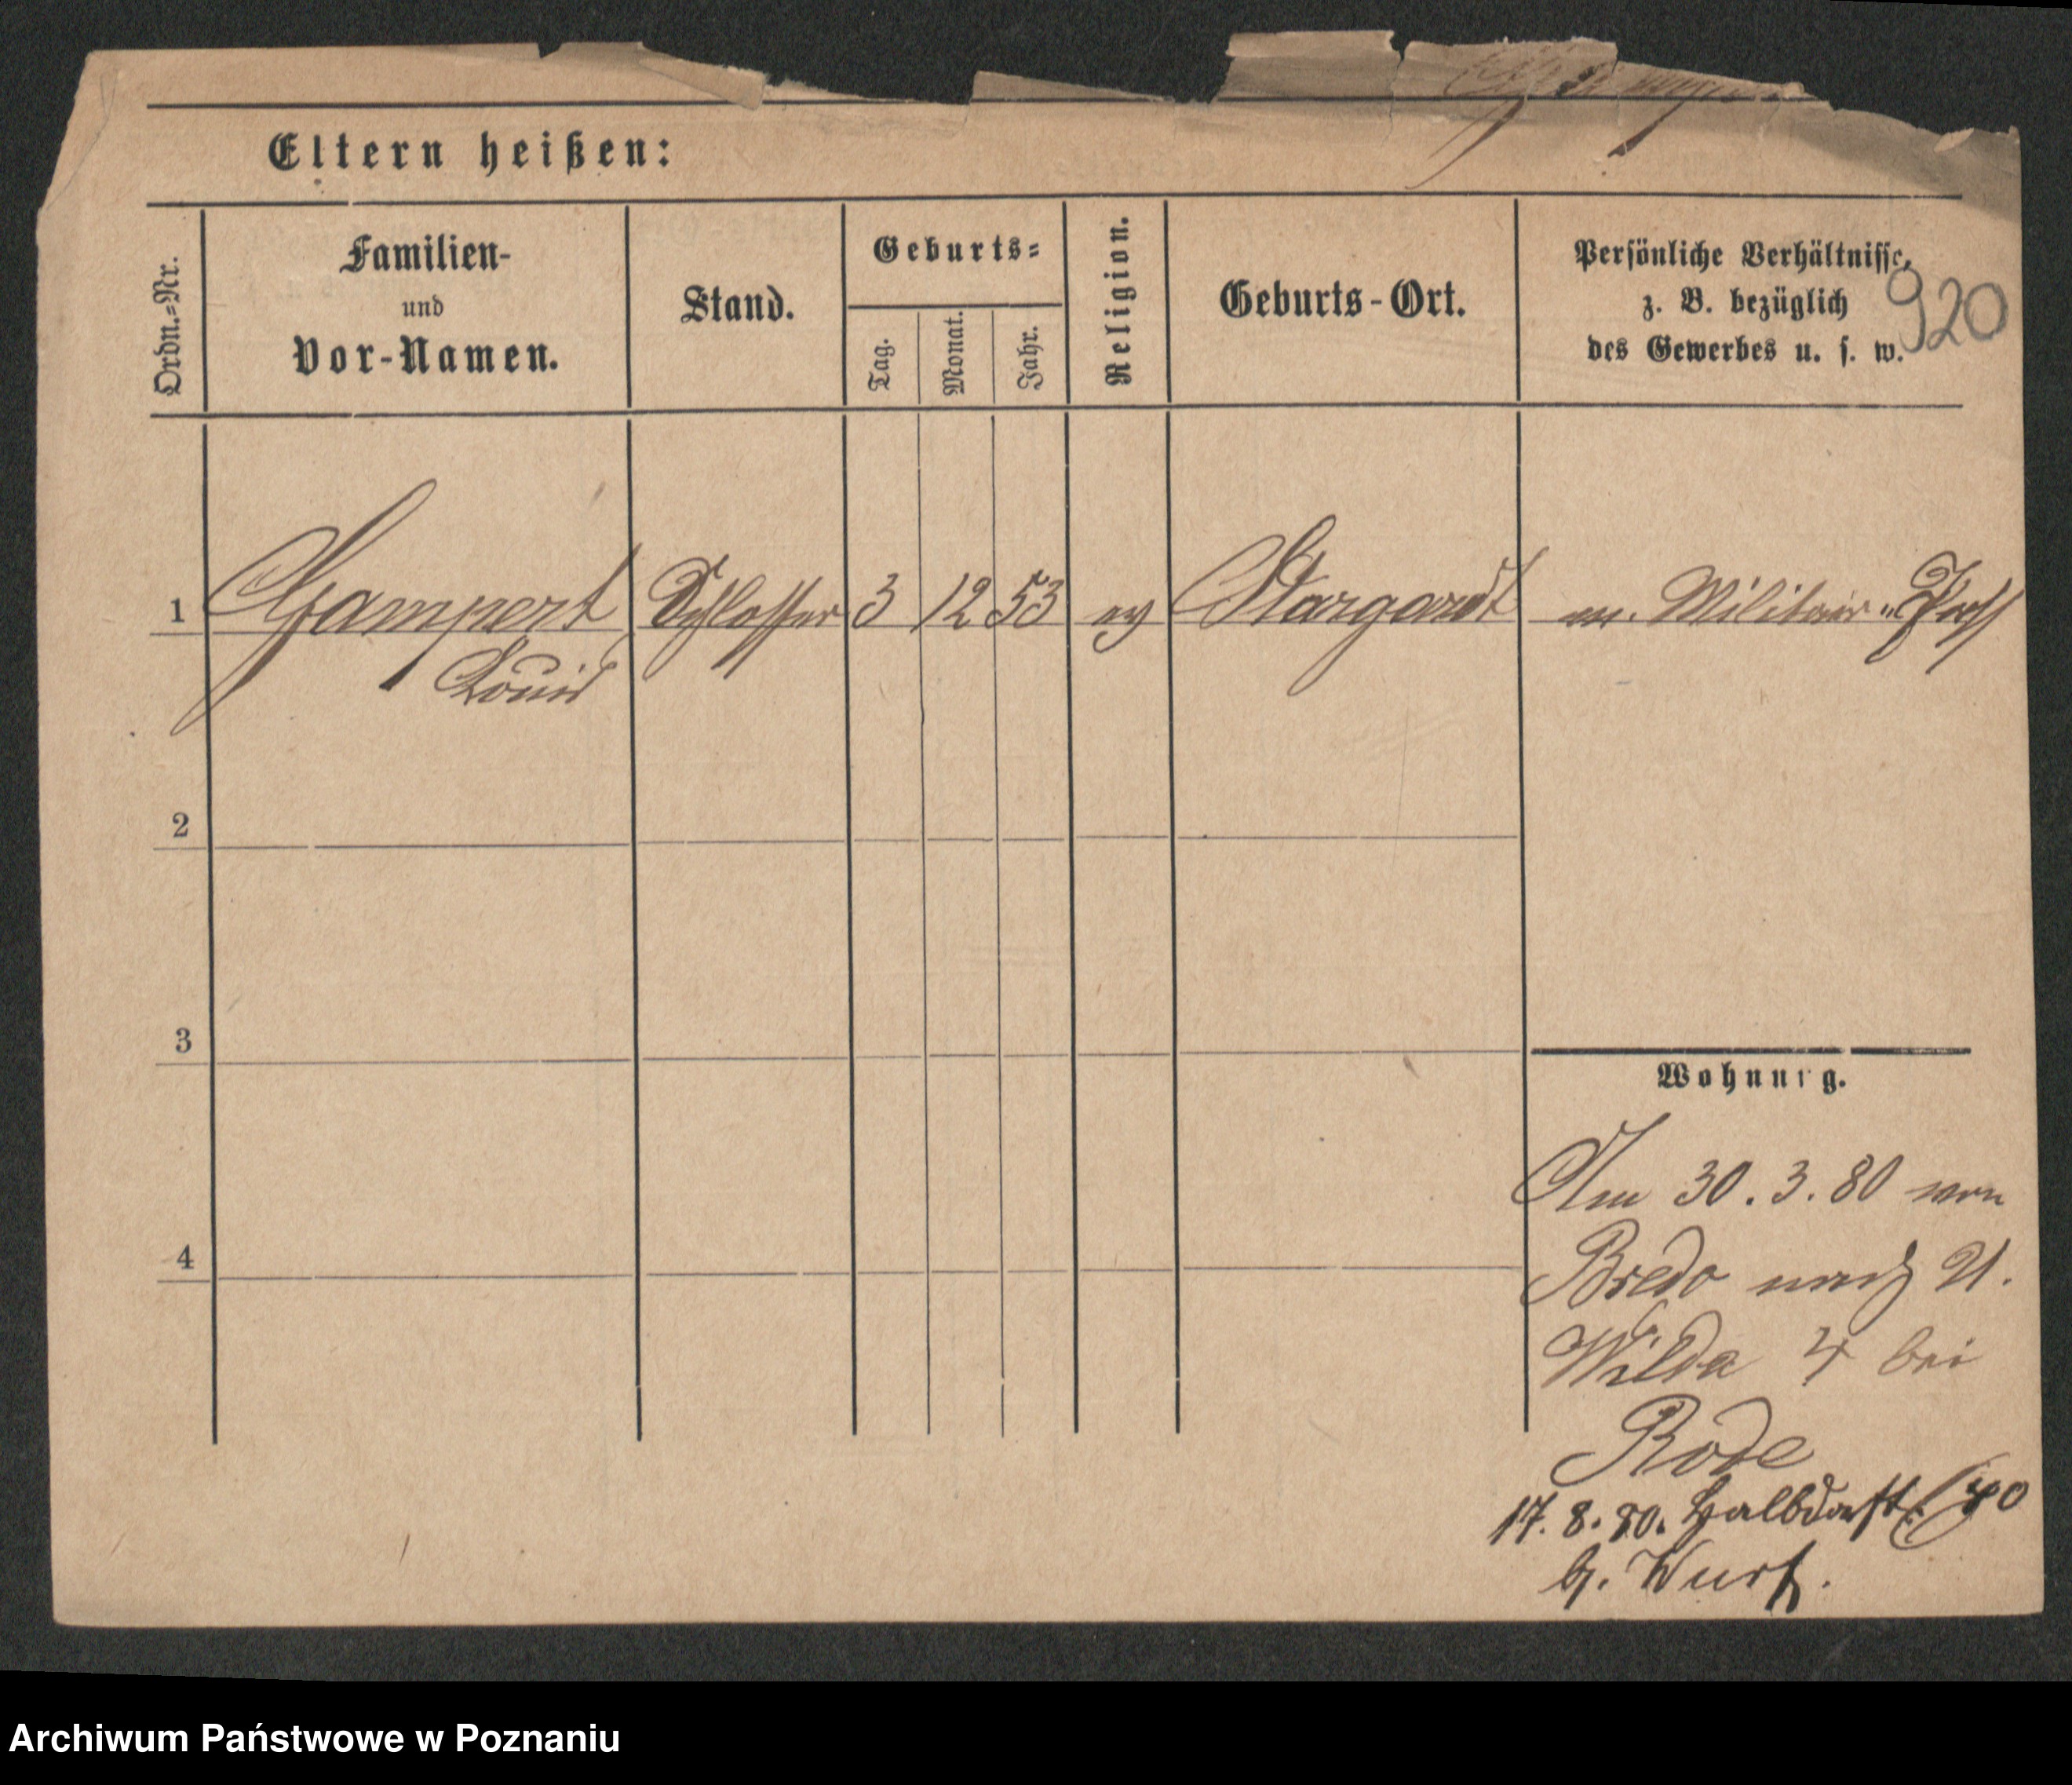 Eltern heißen:
Ordn.=Nr.
Familien-
und
Vor-Namen.
Stand.
Geburts=
Tag.
Monat.
Jahr.
Religion.
Geburts-Ort.
Persönliche Verhältnisse,
z. B. bezüglich
des Gewerbes u. s. w.
920
1 Gampert Schlosser 3 12 53 ev Stargardt m. Militair-Paß
Louis
2
3
4
Wohnung.
Am 30.3.80 von
Bredo nach U.
Wilda 4 bei
Rode
17.8.80. Halbdorfstr 40
b. Wurf.
Archiwum Państwowe w Poznaniu